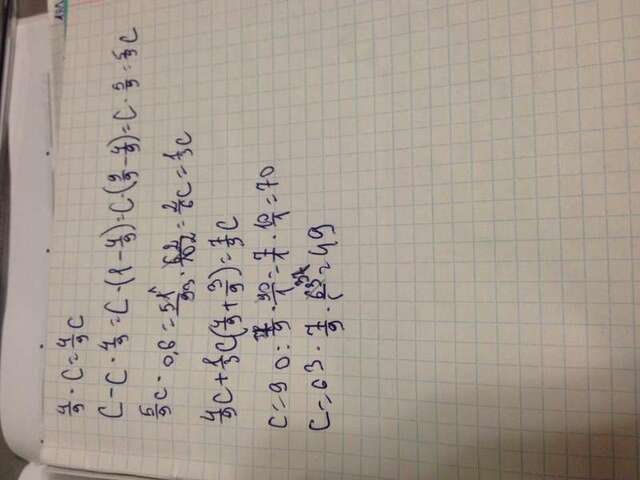 4/9 · C = 4/9 C
C - C · 4/9 = C · (1 - 4/9) = C · (9/9 - 4/9) = C · 5/9 = 5/9 C
5/9 C · 0,6 = 5/9 · 6/10 = 2/6 C = 1/3 C
4/9 C + 1/3 C (4/9 + 3/9) = 7/9 C
C = 90 : 7/9 · 90/1 = 7/1 · 10/1 = 70
C = 63 · 7/9 · 63/1 = 49